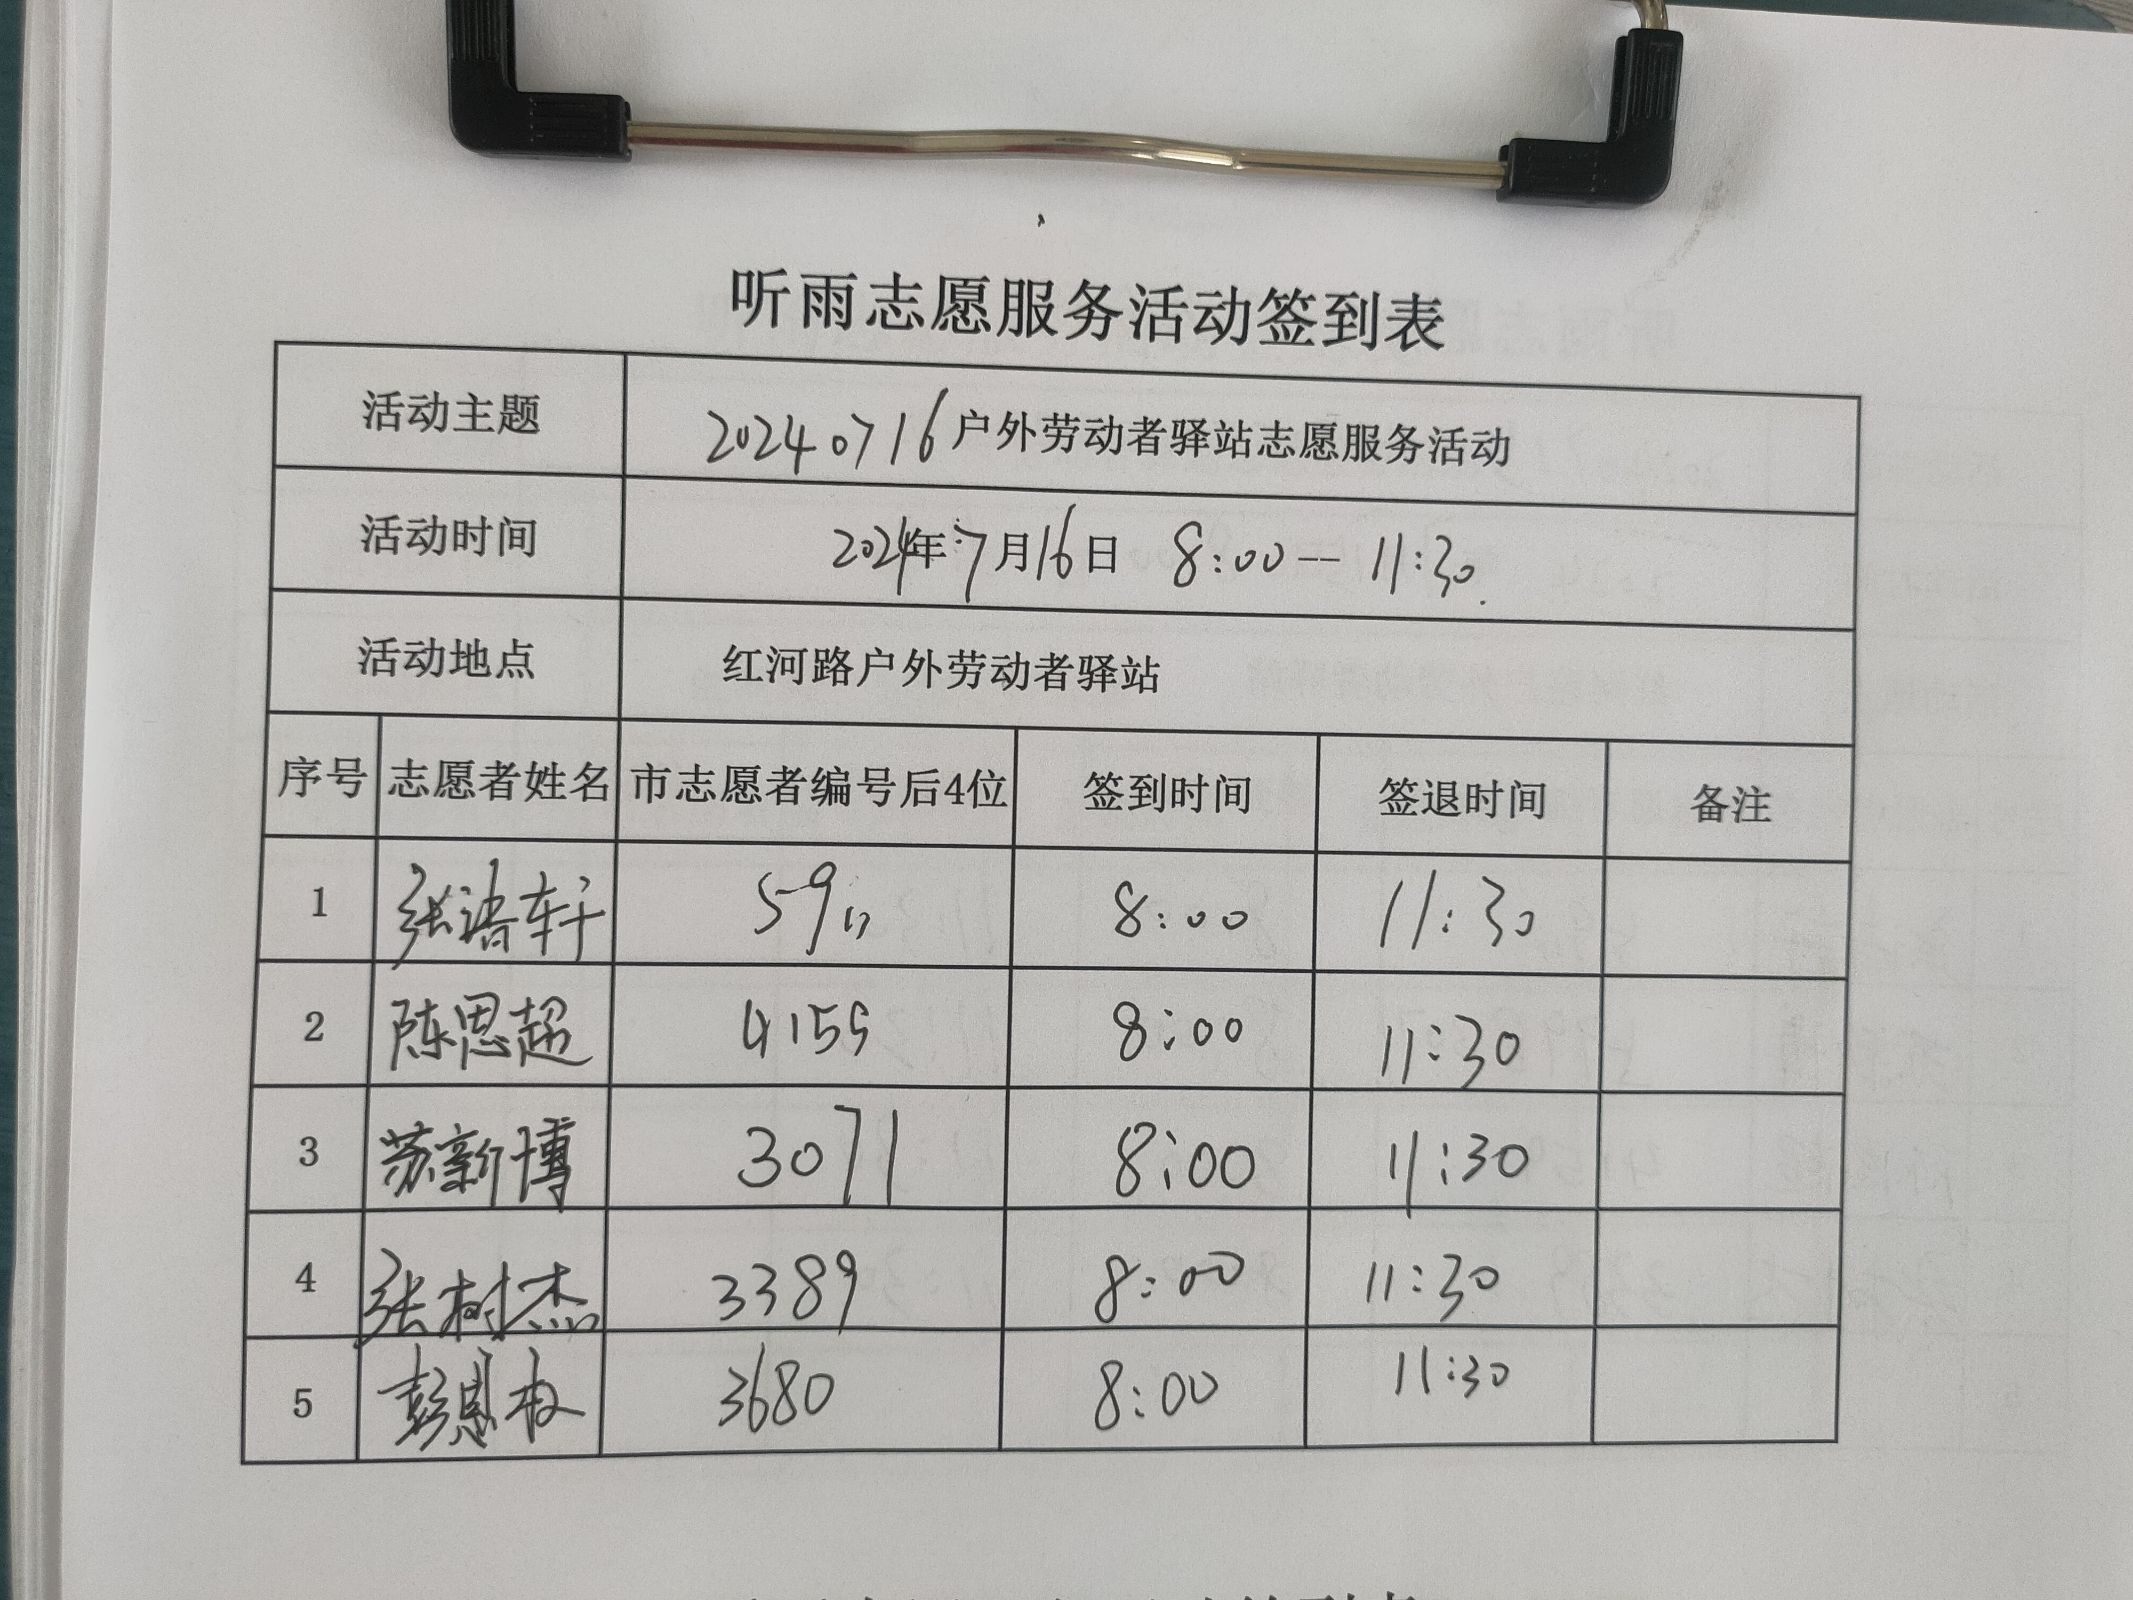 听雨志愿服务活动签到表
活动主题 20240716户外劳动者驿站志愿服务活动
活动时间 2024年7月16日 8:00-- 11:30.
活动地点 红河路户外劳动者驿站
序号 志愿者姓名 市志愿者编号后4位 签到时间 签退时间 备注
1 张浩轩 5911 8:00 11:30
2 陈思超 4159 8:00 11:30
3 苏新博 3071 8:00 11:30
4 张树杰 3389 8:00 11:30
5 彭 权 3680 8:00 11:30